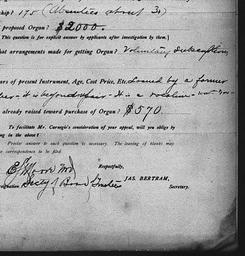 175 (
proposed Organ? $2000.
(This question is for explicit answer by applicants after investigation by them.)
hat arrangements made for getting Organ? Voluntary Subscription
ars of present Instrument, Age, Cost Price, Etc. Loaned by a former
It is beyond repair. It is a
already raised toward purchase of Organ? $570.
To facilitate Mr. Carnegie's consideration of your appeal, will you oblige by
ing in the above?
Precise answer to each question is necessary. The leaving of blanks may
no correspondence to be filed.
Respectfully,
E Moore MD
Secty Board Trustees
JAS. BERTRAM,
Secretary.